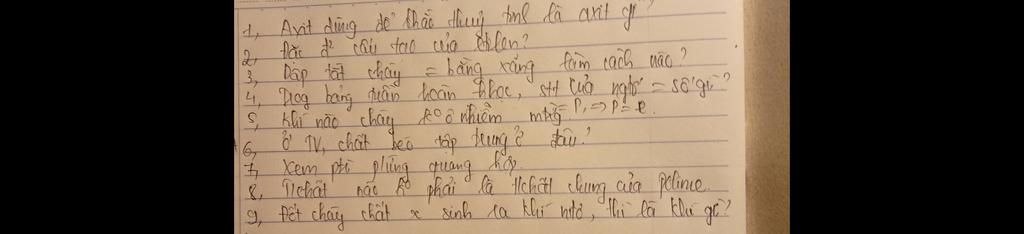 1, Axit dùng để khắc thuỷ tinh là axit gì
2, Đặc đ² cấu tạo của etilen?
3, Dập tắt cháy = bằng xăng làm cách nào?
4, Trog bảng tuần hoàn hhọc, stt của ngtố = số gì?
5, Khí nào cháy k° ô nhiễm mtrg = P, => P = e.
6, Ở TV, chất béo tập trung ở đâu?
7, Xem ptr pứng quang hợp
8, Tchất nào k° phải là tchất chung của polime.
9, Đốt cháy chất x sinh ra khí nitơ, thì là khí gì?